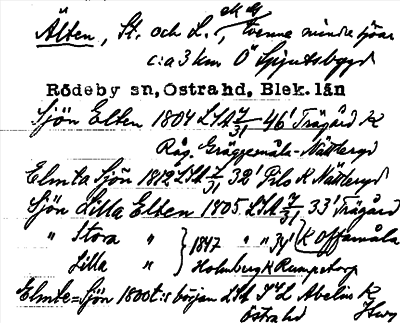 Älten, St. och L., tvenne mindre sjöar
c:a 3 km O Spjutsbygd
Rödeby sn, Östra hd, Blek. län
Sjön Elten 1804 LSA 7/31 46' Trägård K
Råg. Gräggemåla - Nättergd
Elmta Sjön 1812 LSA 7/31 32' Fils K Nättergd
Sjön Lilla Elten 1805 LSA 7/31 33' Trägård
" Stora " } 1847 " " 34' K Offamåla
Lilla " Holmberg K Rumpetorp
Elmte=Sjön 1800t:s början LSA Abelin K
Östra hd